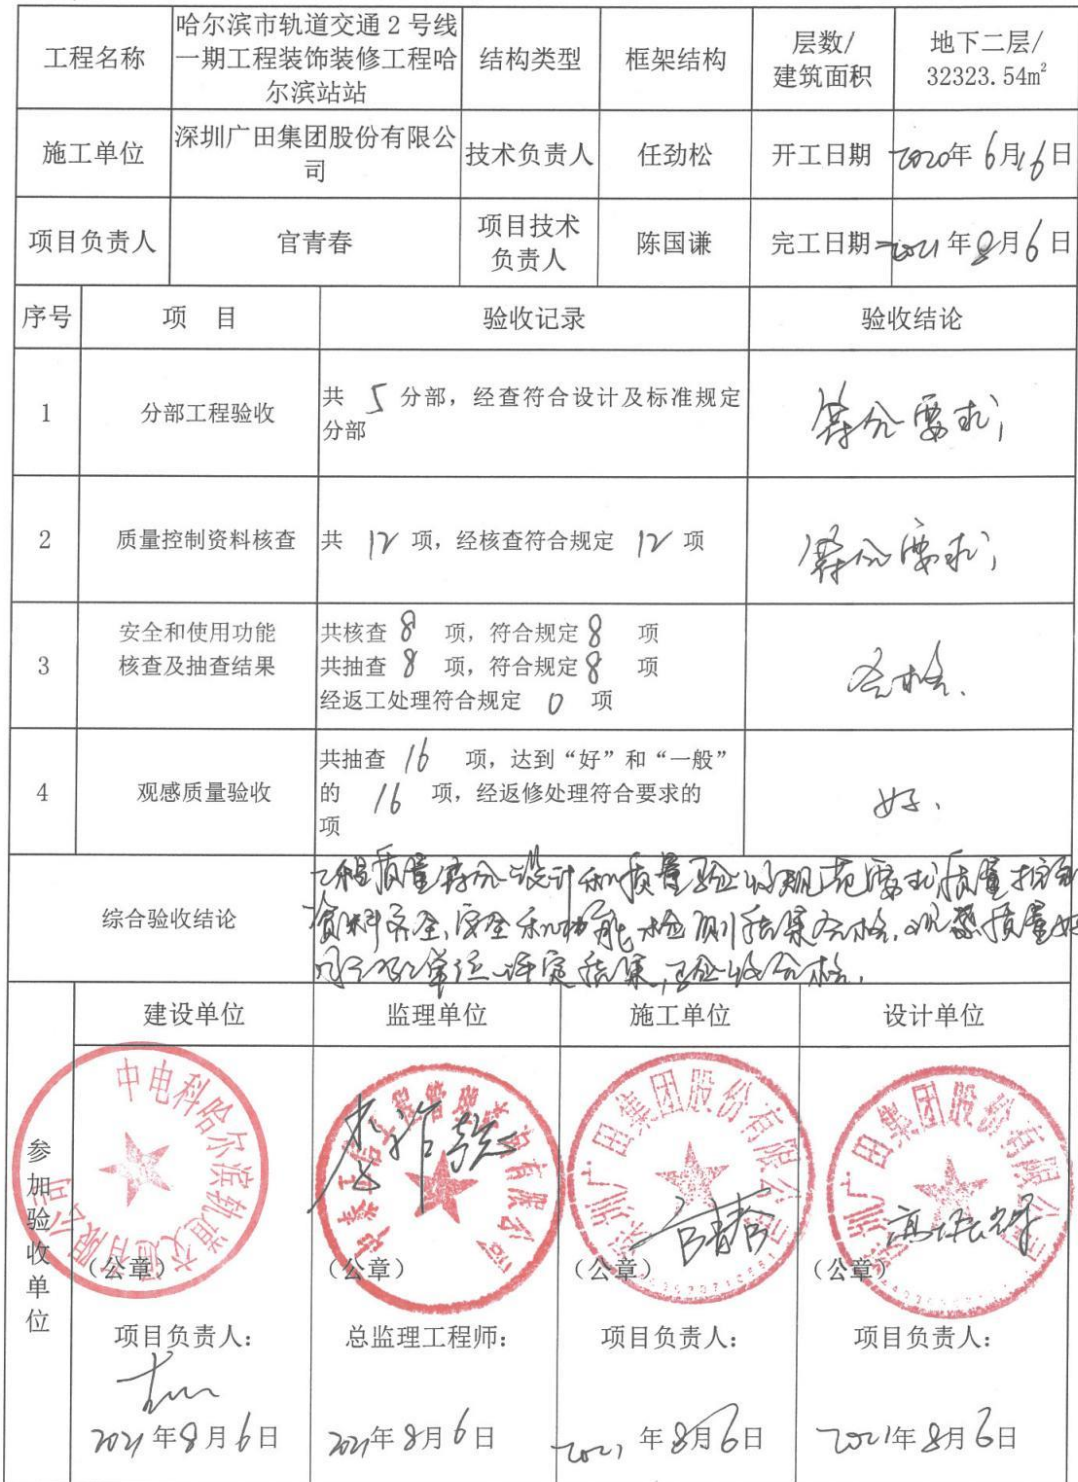 工程名称
哈尔滨市轨道交通2号线
一期工程装饰装修工程哈
尔滨站站
结构类型
框架结构
层数/
建筑面积
地下二层/
32323.54m²
施工单位
深圳广田集团股份有限公
司
技术负责人
任劲松
开工日期
2020年6月16日
项目负责人
官青春
项目技术
负责人
陈国谦
完工日期
2021年8月6日
序号
项 目
验收记录
验收结论
1
分部工程验收
共 5 分部，经查符合设计及标准规定
分部
符合要求;
2
质量控制资料核查
共 12 项，经核查符合规定 12 项
符合要求;
3
安全和使用功能
核查及抽查结果
共核查 8 项，符合规定 8 项
共抽查 8 项，符合规定 8 项
经返工处理符合规定 0 项
合格.
4
观感质量验收
共抽查 16 项，达到“好”和“一般”
的 16 项，经返修处理符合要求的
项
好.
综合验收结论
工程质量符合设计和质量验收规范要求,质量控制
资料齐全,安全和功能检测结果合格,观感质量好
同意单位评定结果,验收合格.
参加验收单位
建设单位
监理单位
施工单位
设计单位
中电科哈尔滨轨道交通有限公司
有限公司
深圳广田集团股份有限公司
深圳广田集团股份有限公司
官青春
(公章)
(公章)
(公章)
(公章)
项目负责人:
总监理工程师:
项目负责人:
项目负责人:
2021年8月6日
2021年8月6日
2021年8月6日
2021年8月6日